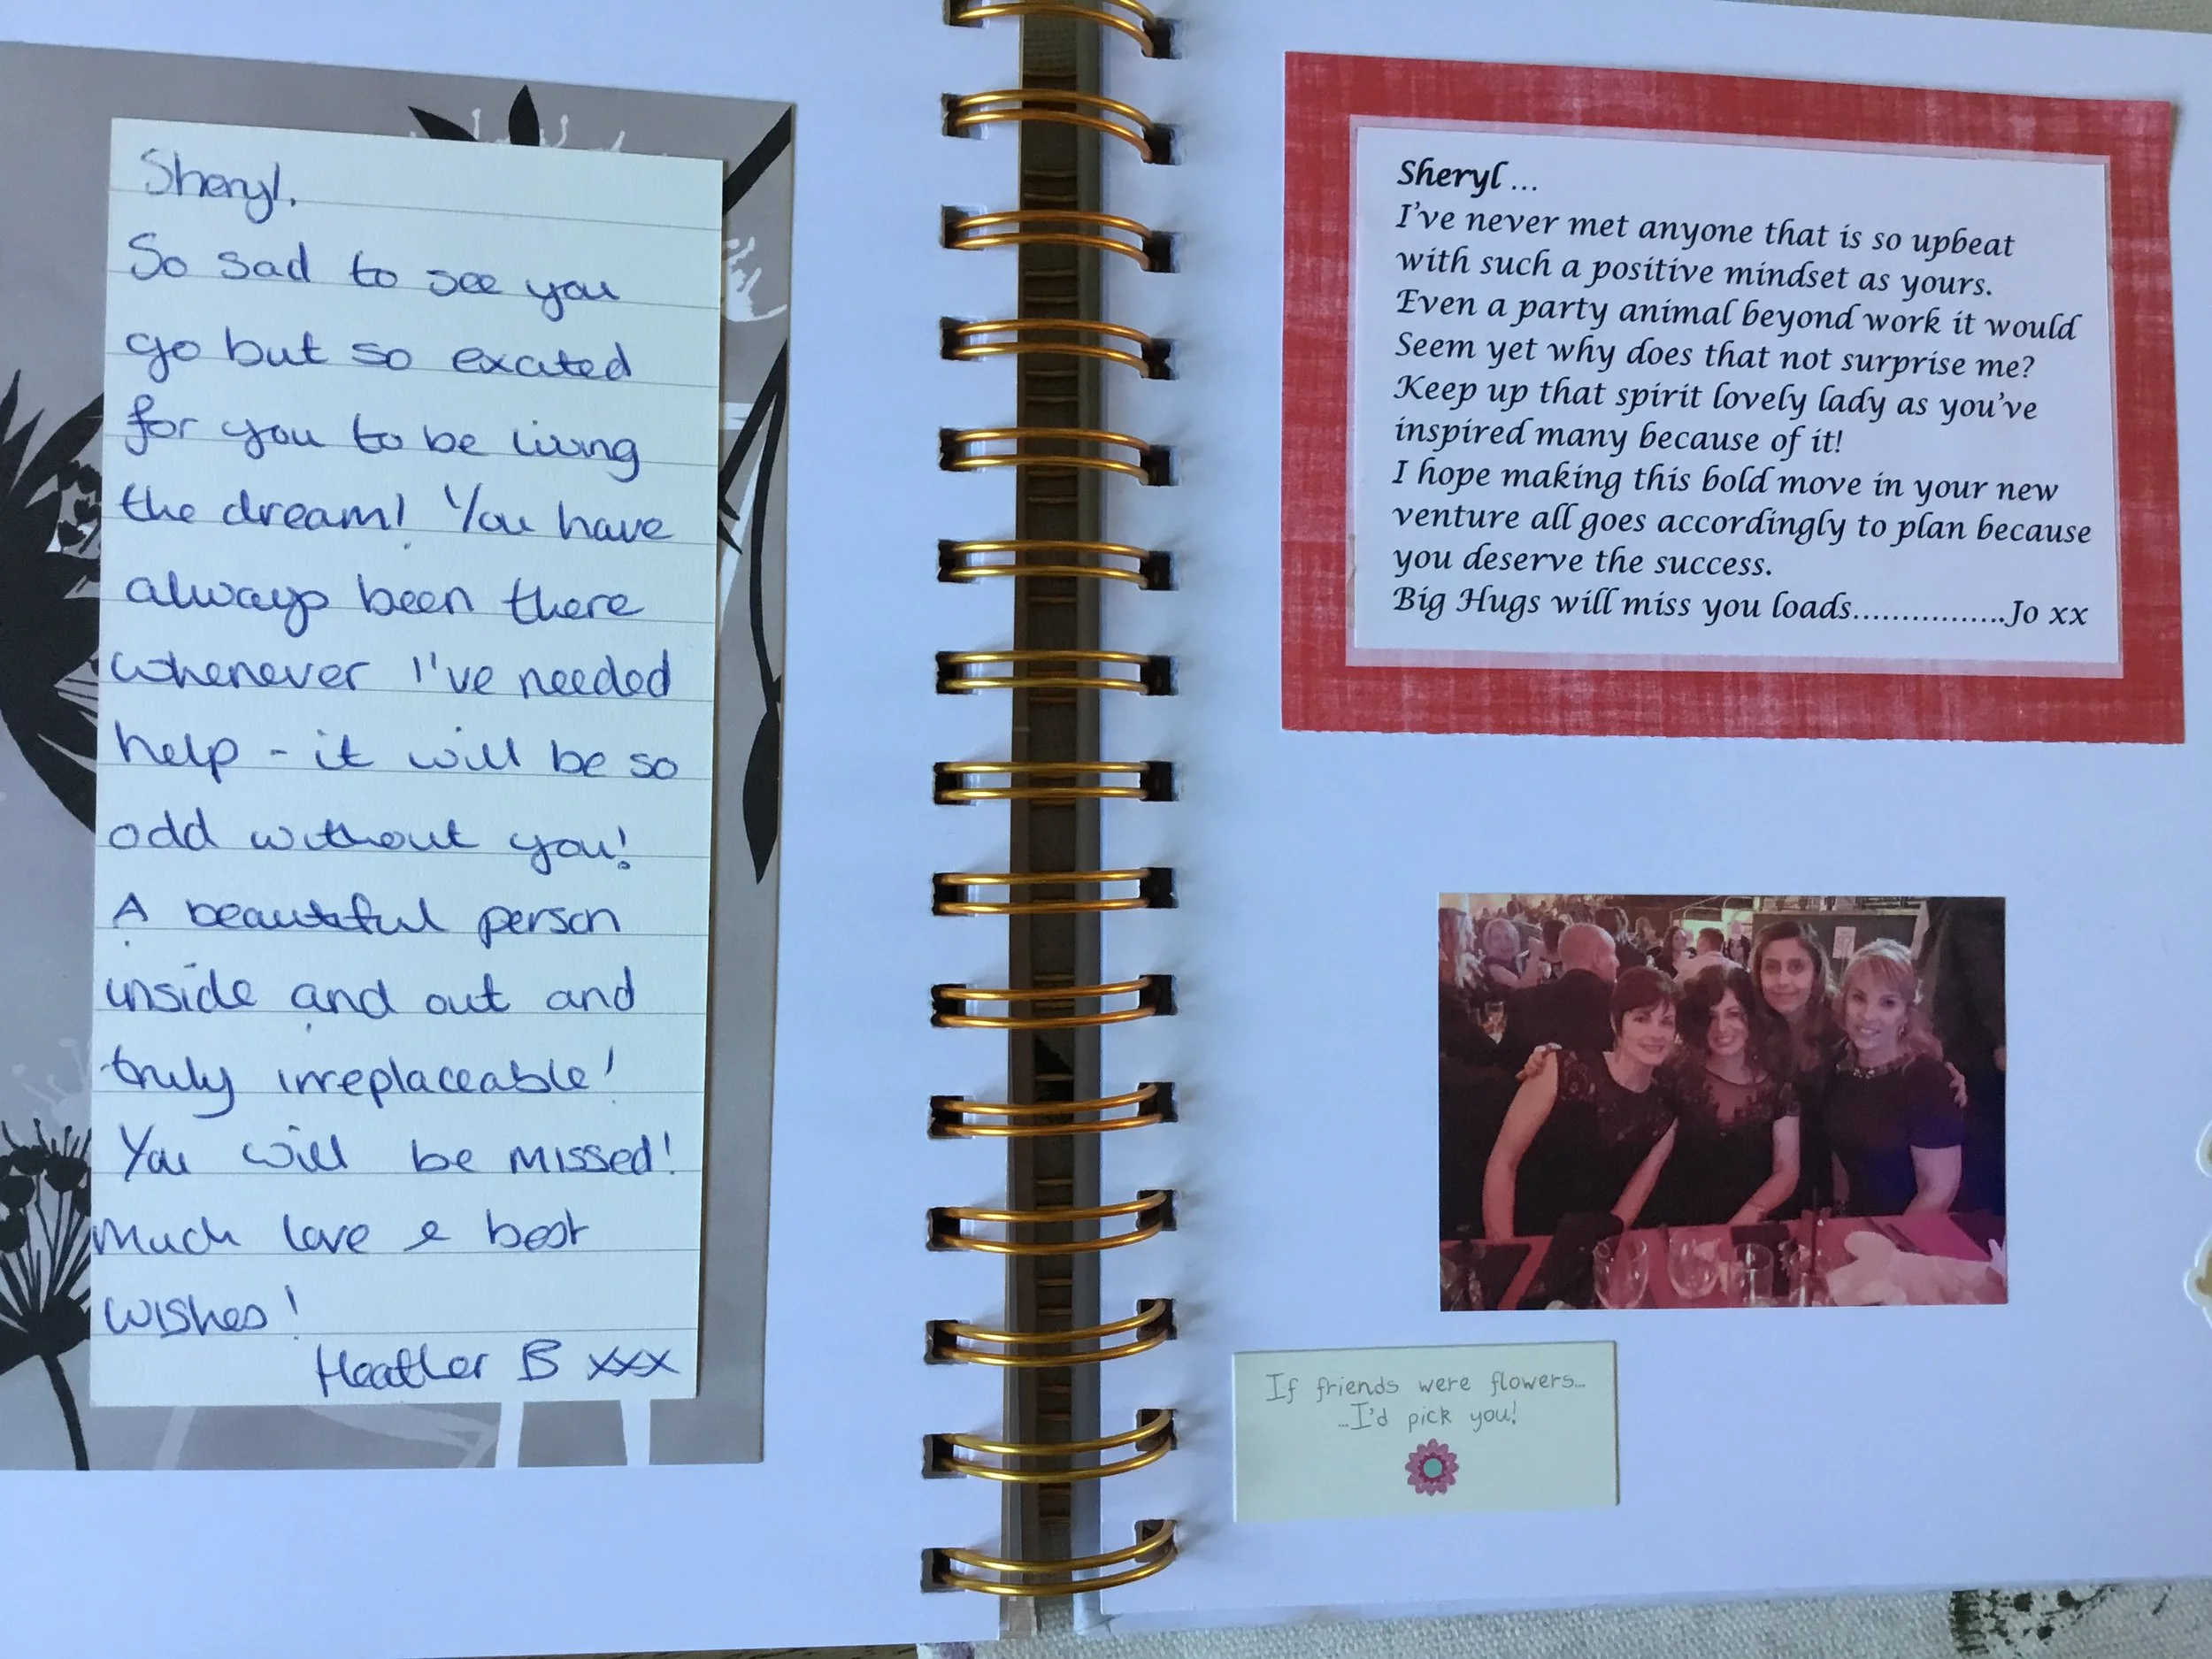 Sheryl,
So sad to see you
go but so excited
for you to be living
the dream! You have
always been there
whenever I've needed
help - it will be so
odd without you!
A beautiful person
inside and out and
truly irreplaceable!
You will be missed!
Much love & best
wishes!
Heather B xxx
Sheryl...
I've never met anyone that is so upbeat
with such a positive mindset as yours.
Even a party animal beyond work it would
Seem yet why does that not surprise me?
Keep up that spirit lovely lady as you've
inspired many because of it!
I hope making this bold move in your new
venture all goes accordingly to plan because
you deserve the success.
Big Hugs will miss you loads................Jo xx
If friends were flowers...
...I'd pick you!